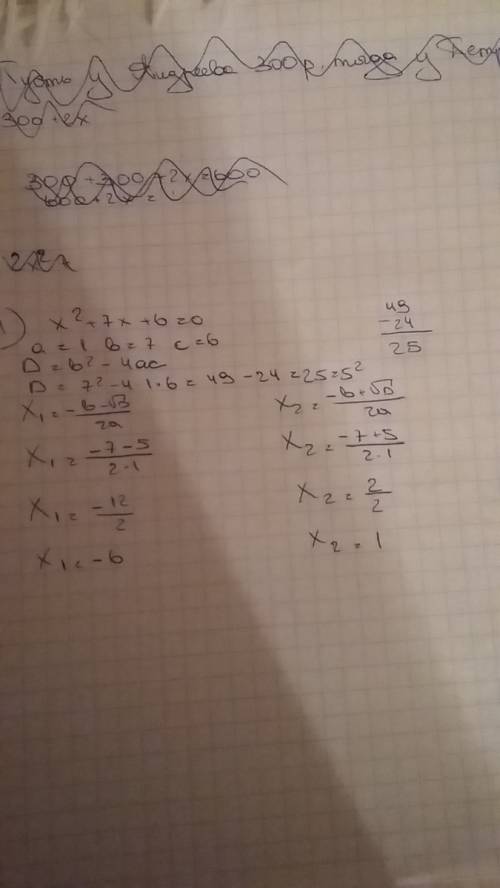 Пусть у Андреева 300р тогда у Петр
300+2x
300+300+2x=600
600+2x=
1) x²+7x+6=0
a=1 b=7 c=6
D=b²-4ac
D=7²-4·1·6=49-24=25=5²
49
-24
25
x₁=-b-√D/2a
x₂=-b+√D/2a
x₁=-7-5/2·1
x₂=-7+5/2·1
x₁=-12/2
x₂=2/2
x₁=-6
x₂=1